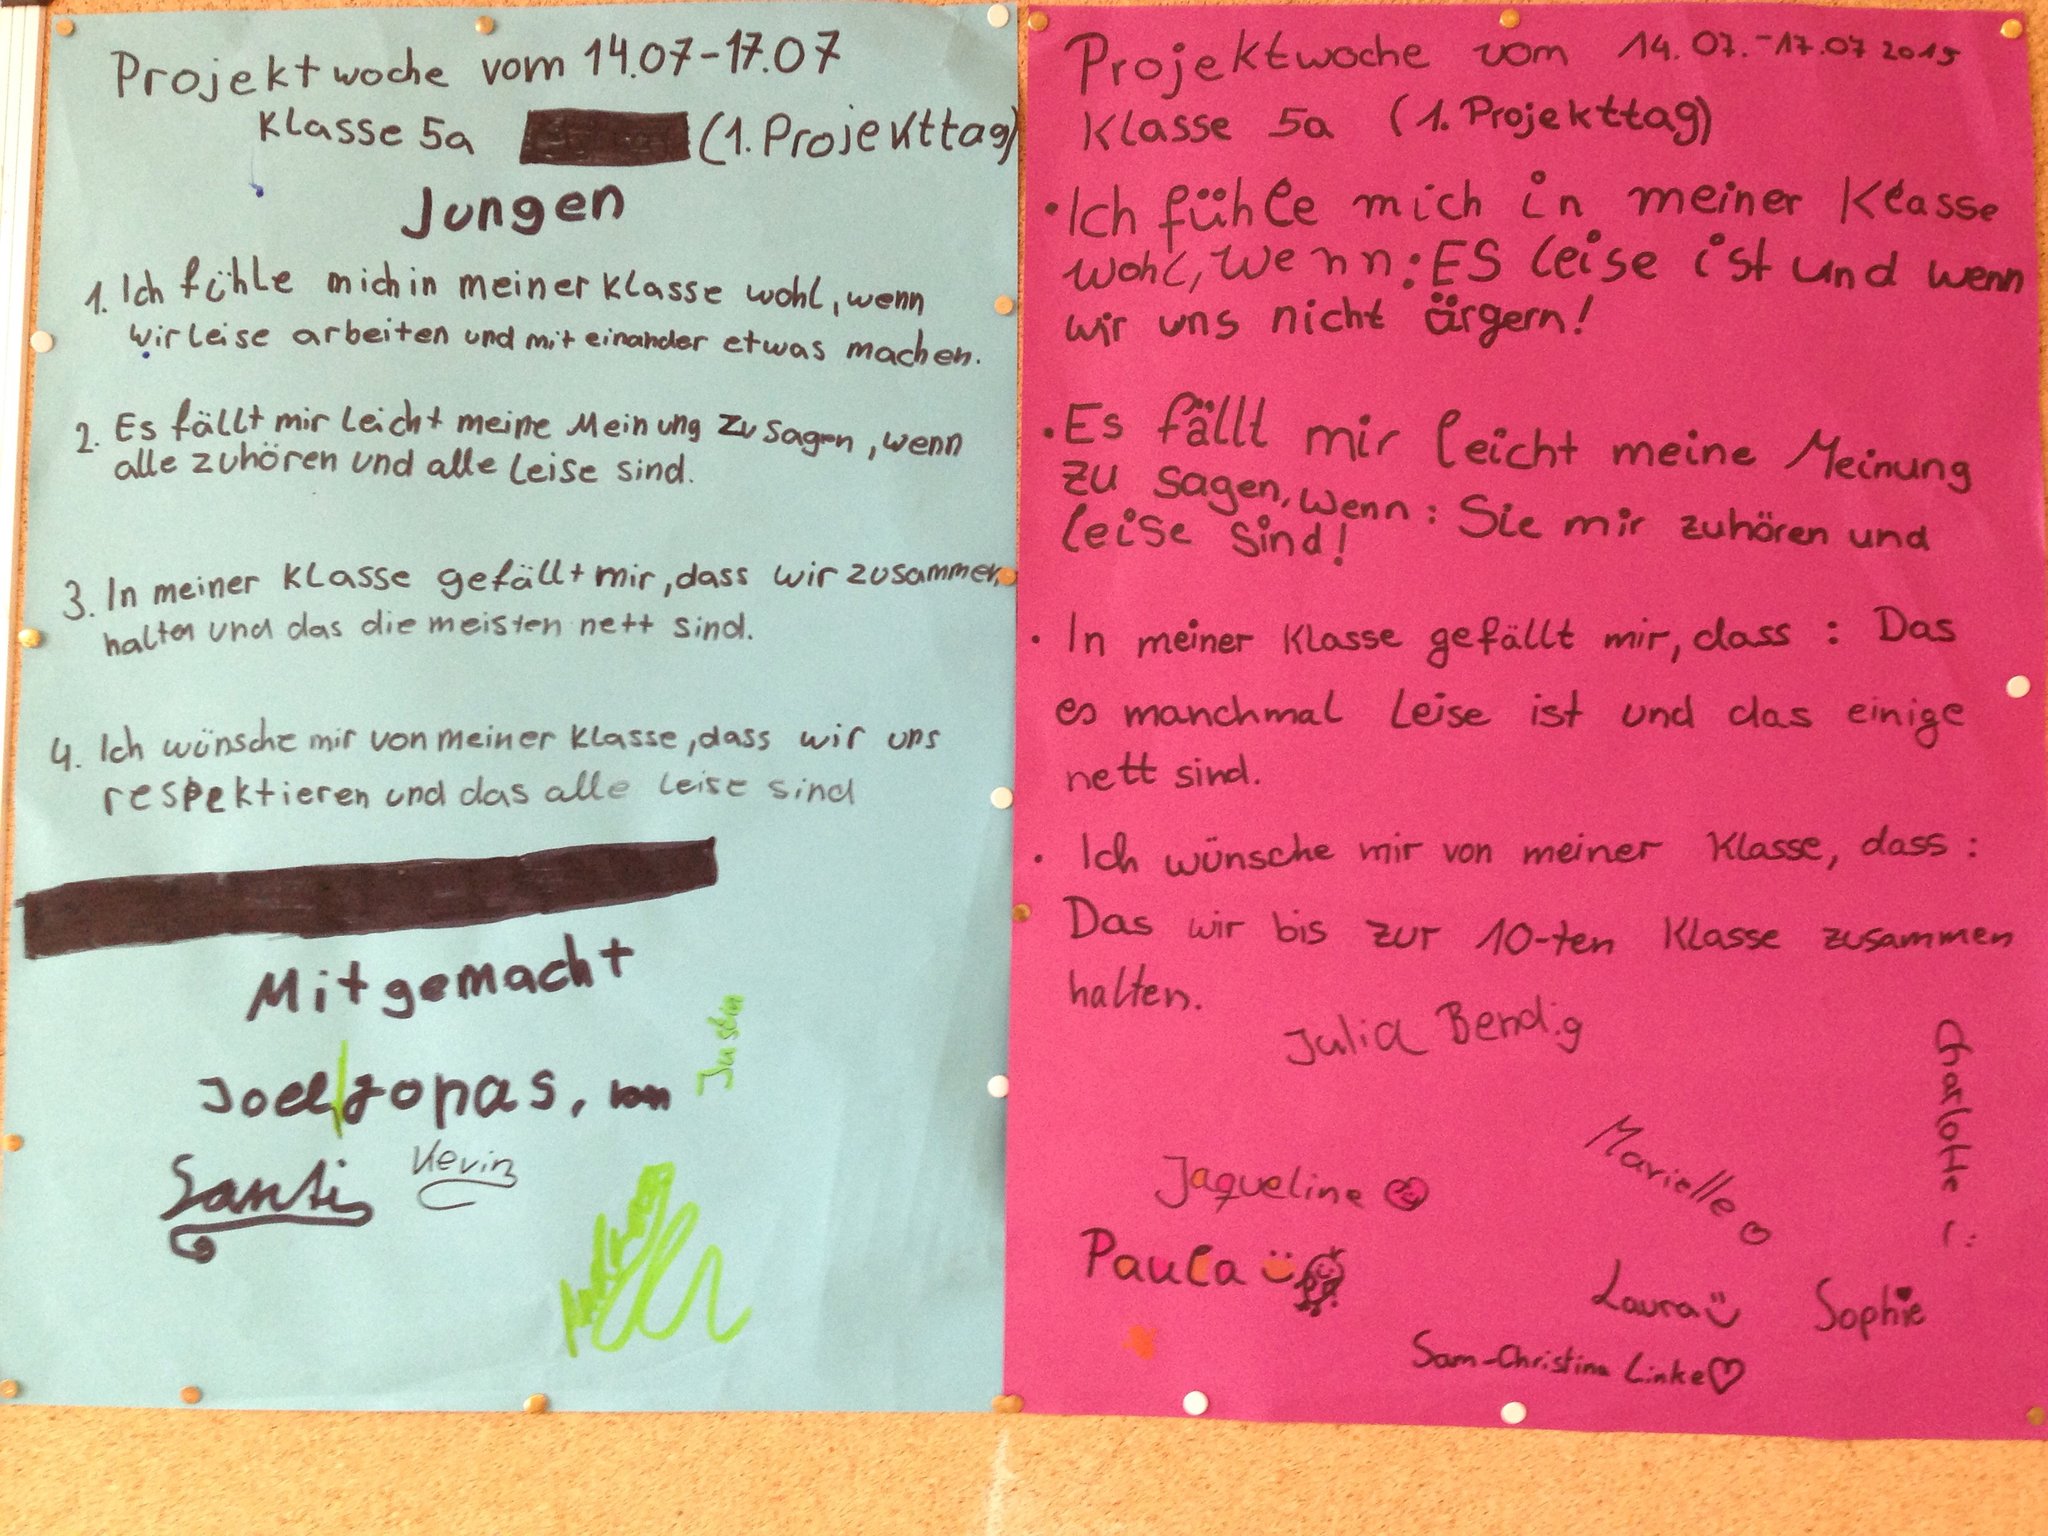 Projektwoche vom 14.07-17.07
Klasse 5a (1. Projekttag)
Jungen
1. Ich fühle mich in meiner Klasse wohl, wenn
wir leise arbeiten und miteinander etwas machen.
2. Es fällt mir leicht meine Meinung zu sagen, wenn
alle zuhören und alle leise sind.
3. In meiner Klasse gefällt mir, dass wir zusammen
halten und das die meisten nett sind.
4. Ich wünsche mir von meiner Klasse, dass wir uns
respektieren und das alle leise sind
Mitgemacht
Joel, Jonas,
Justin
Santi Kevin
Projektwoche vom 14.07.-17.07 2015
Klasse 5a (1. Projekttag)
• Ich fühle mich in meiner Klasse
wohl, wenn: ES leise ist und wenn
wir uns nicht ärgern!
• Es fällt mir leicht meine Meinung
zu sagen, wenn: Sie mir zuhören und
leise sind!
• In meiner Klasse gefällt mir, dass: Das
es manchmal leise ist und das einige
nett sind.
• Ich wünsche mir von meiner Klasse, dass:
Das wir bis zur 10-ten Klasse zusammen
halten.
Julia Bendig
Charlotte (:
Marielle
Jaqueline
Paula
Laura
Sophie
Sam-Christina Linke